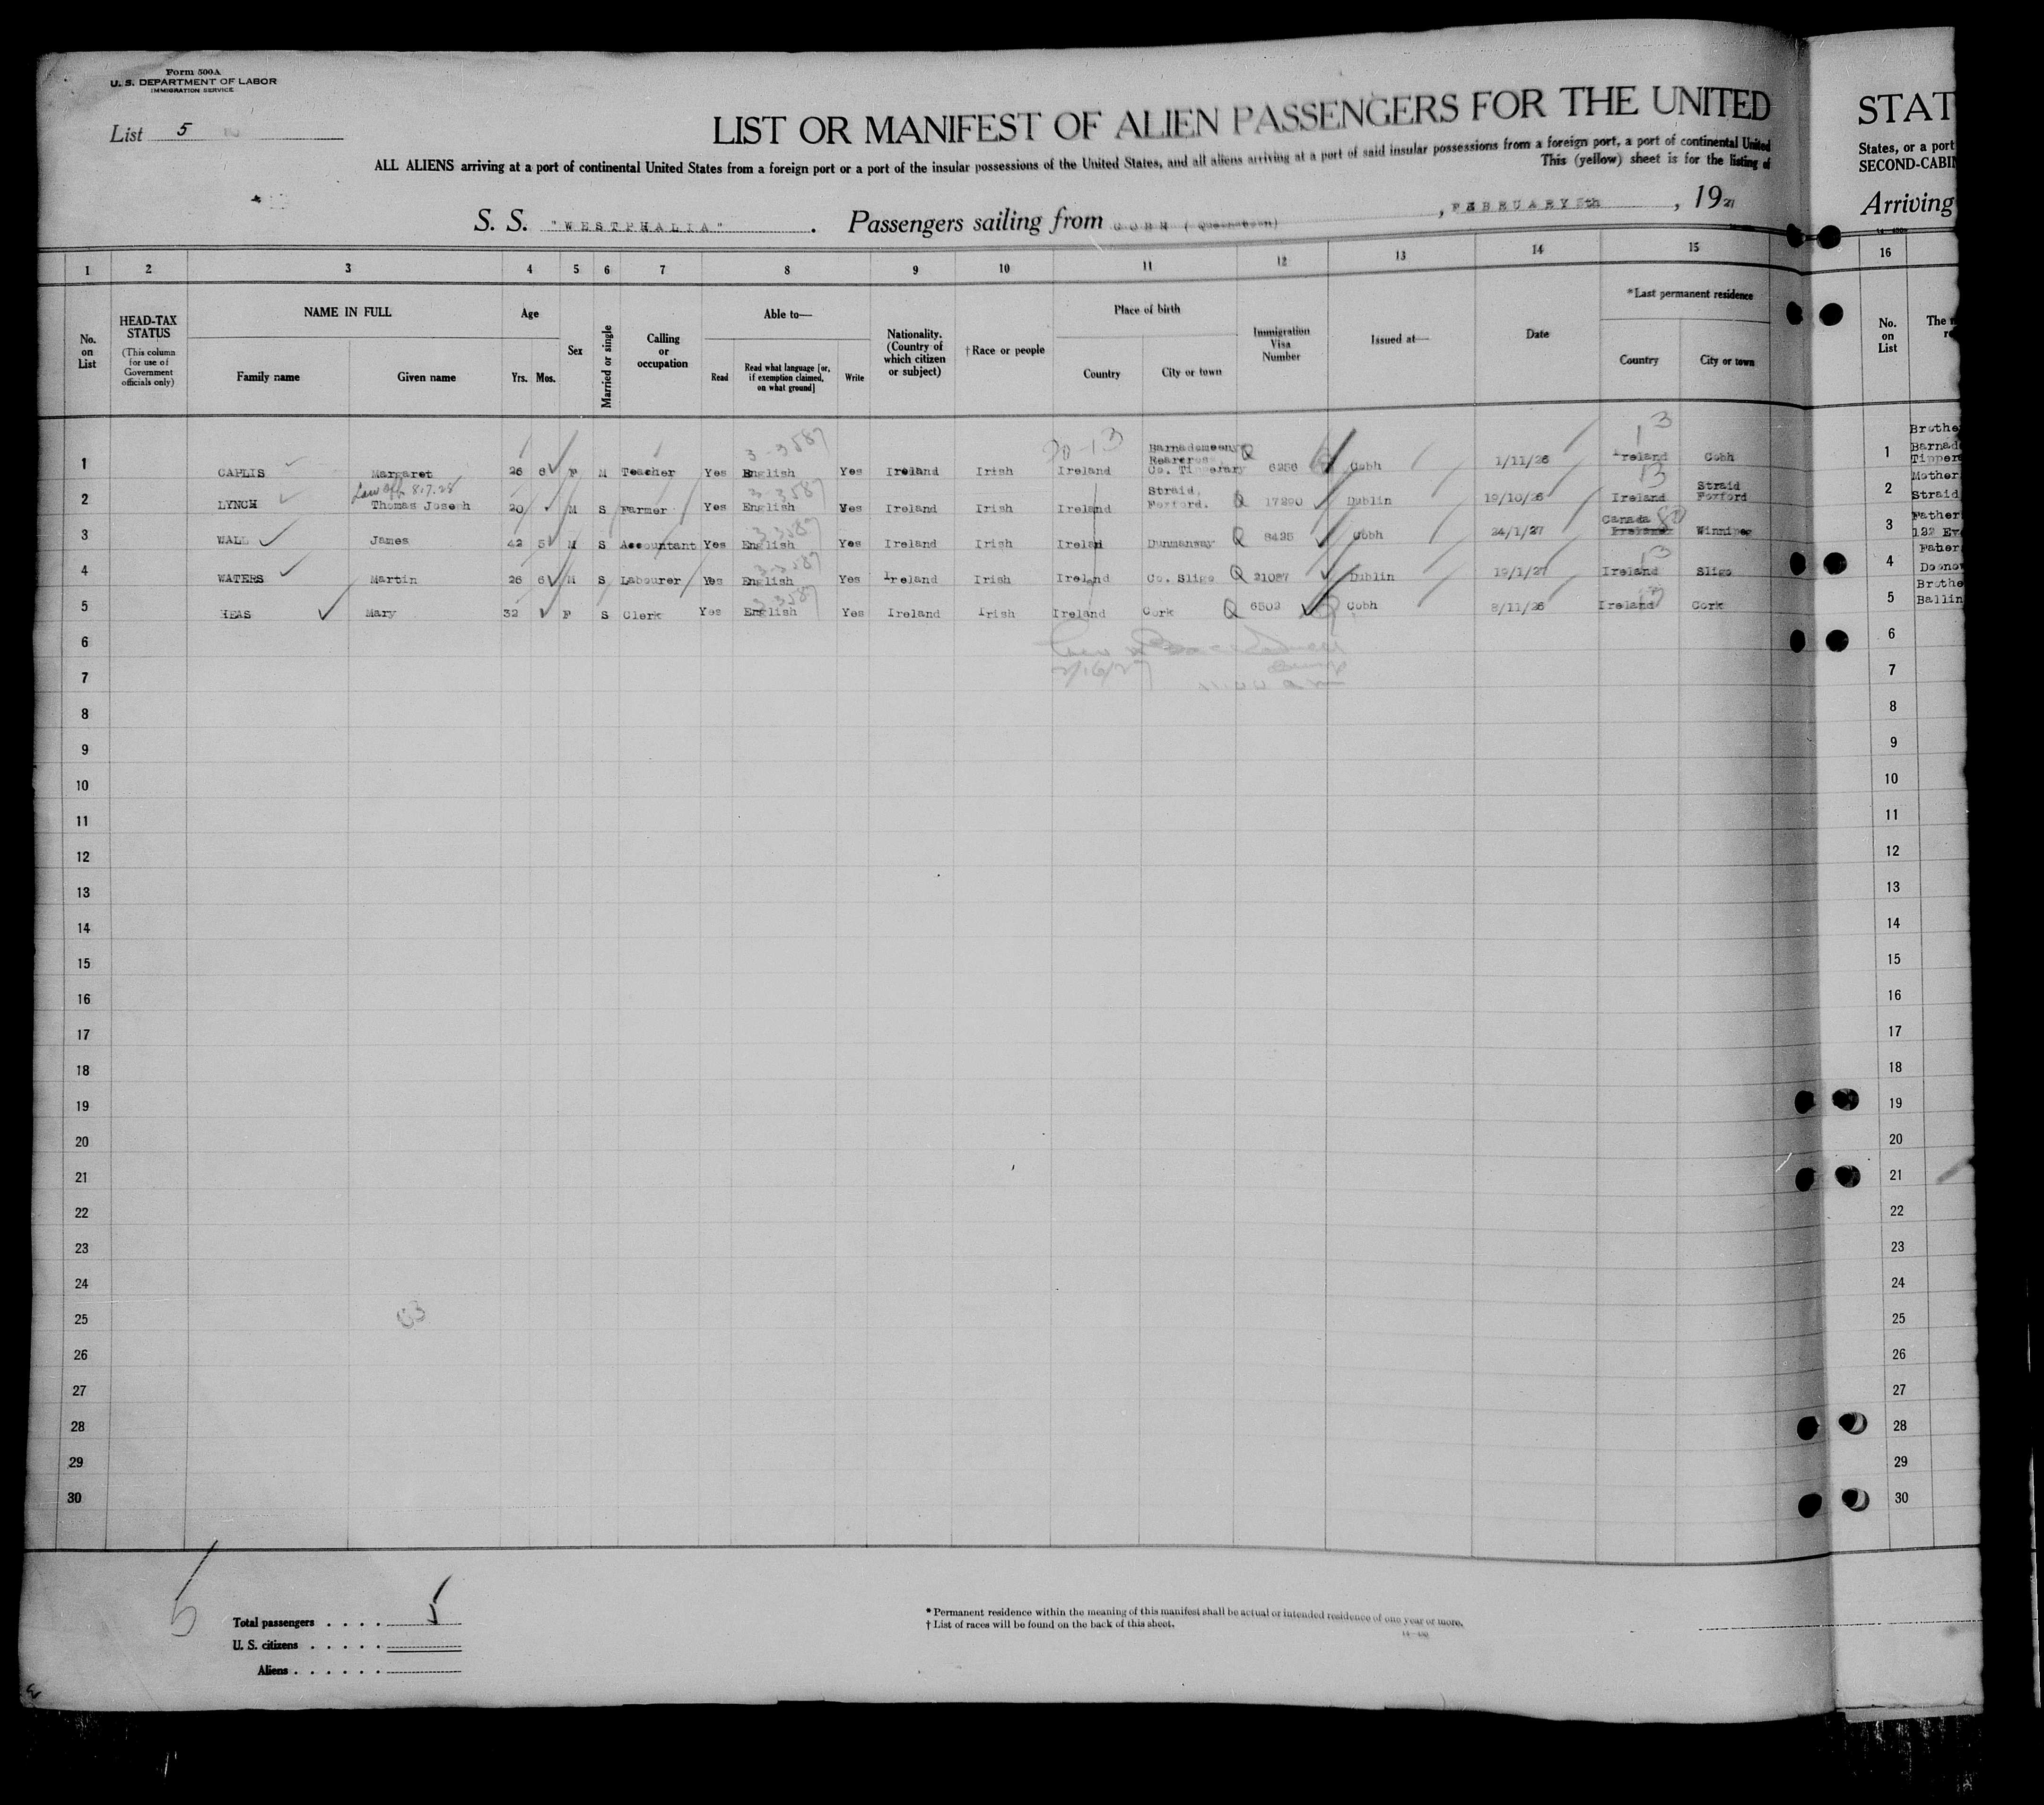 Form 500A
U. S. DEPARTMENT OF LABOR
IMMIGRATION SERVICE
List 5
LIST OR MANIFEST OF ALIEN PASSENGERS FOR THE UNITED
ALL ALIENS arriving at a port of continental United States from a foreign port or a port of the insular possessions of the United States, and all aliens arriving at a port of said insular possessions from a foreign port, a port of continental United
This (yellow) sheet is for the listing of
S. S. "WESTPHALIA". Passengers sailing from COBH (Queenstown), FEBRUARY 5th, 1927
1 2 3 4 5 6 7 8 9 10 11 12 13 14 15
No. on List
HEAD-TAX STATUS
(This column for use of Government officials only)
NAME IN FULL
Family name Given name
Age
Yrs. Mos.
Sex
Married or single
Calling or occupation
Able to—
Read
Read what language [or, if exemption claimed, on what ground]
Write
Nationality. (Country of which citizen or subject)
†Race or people
Place of birth
Country City or town
Immigration Visa Number
Issued at—
Date
*Last permanent residence
Country City or town
3-3587
20-13
13
1 CAPLIS Margaret 26 6 F M Teacher Yes English Yes Ireland Irish Ireland Barnademeeny Rearcross, Co. Tipperary Q 6256 Cobh 1/11/26 Ireland Cobh
8.7.28
3-3587
13
2 LYNCH Thomas Joseph 20 M S Farmer Yes English Yes Ireland Irish Ireland Straid, Foxford. Q 17290 Dublin 19/10/26 Ireland Straid Foxford
3-3587
3 WALL James 42 5 M S Accountant Yes English Yes Ireland Irish Ireland Dunmanway Q 8425 Cobh 24/1/27 Canada Ireland Winnipeg
3-3587
13
4 WATERS Martin 26 6 M S Labourer Yes English Yes Ireland Irish Ireland Co. Sligo Q 21087 Dublin 19/1/27 Ireland Sligo
3-3587
5 HEAS Mary 32 F S Clerk Yes English Yes Ireland Irish Ireland Cork Q 6502 Cobh 8/11/26 Ireland Cork
6
2/16/27
7
8
9
10
11
12
13
14
15
16
17
18
19
20
21
22
23
24
25
26
27
28
29
30
5
Total passengers . . . . 5
U. S. citizens . . . . .
Aliens . . . . . .
* Permanent residence within the meaning of this manifest shall be actual or intended residence of one year or more.
† List of races will be found on the back of this sheet.
STAT
States, or a port
SECOND-CABIN
Arriving
16
No. on List
The n
re
1 Brothe
Barnad
Tipper
2 Mother
Straid
3 Father
132 Ev
4 Father
Doono
5 Brothe
Ballin
6
7
8
9
10
11
12
13
14
15
16
17
18
19
20
21
22
23
24
25
26
27
28
29
30